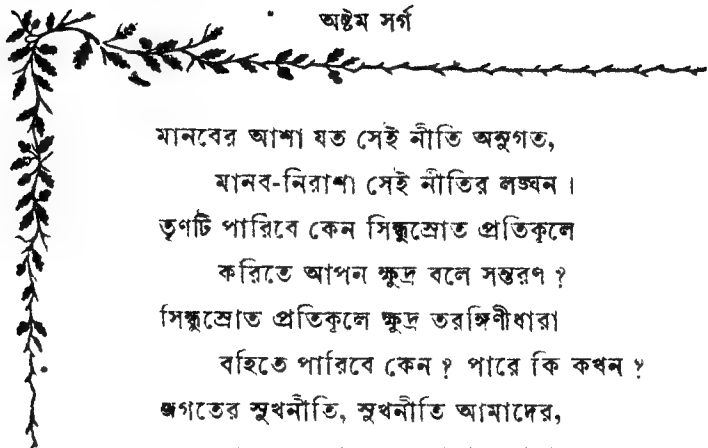 অষ্টম সর্গ
মানবের আশা যত সেই নীতি অনুগত,
মানব-নিরাশা সেই নীতির লঙ্ঘন।
তৃণটি পারিবে কেন সিন্ধুস্রোত প্রতিকূলে
করিতে আপন ক্ষুদ্র বলে সন্তরণ?
সিন্ধুস্রোত প্রতিকূলে ক্ষুদ্র তরঙ্গিণীধারা
বহিতে পারিবে কেন? পারে কি কখন?
জগতের সুখনীতি, সুখনীতি আমাদের,